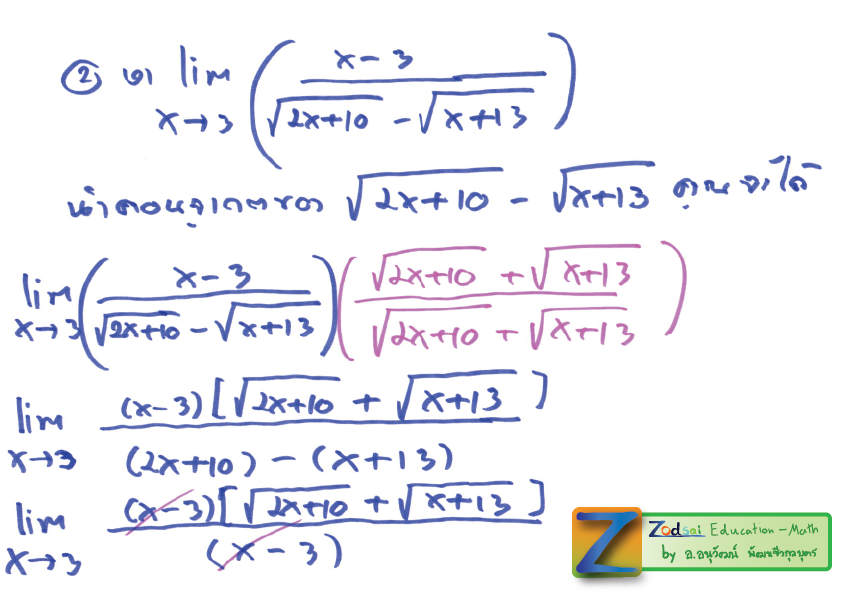 ② หา lim x→3 ( (x-3) / (√(2x+10) - √(x+13)) )
นำคอนจุเกตของ √(2x+10) - √(x+13) คูณ จะได้
lim x→3 ( (x-3) / (√(2x+10) - √(x+13)) ) ( (√(2x+10) + √(x+13)) / (√(2x+10) + √(x+13)) )
lim x→3 (x-3)[√(2x+10) + √(x+13)] / ((2x+10) - (x+13))
lim x→3 (x-3)[√(2x+10) + √(x+13)] / (x-3)
Zodsai Education-Math
by อ.อนุวัฒน์